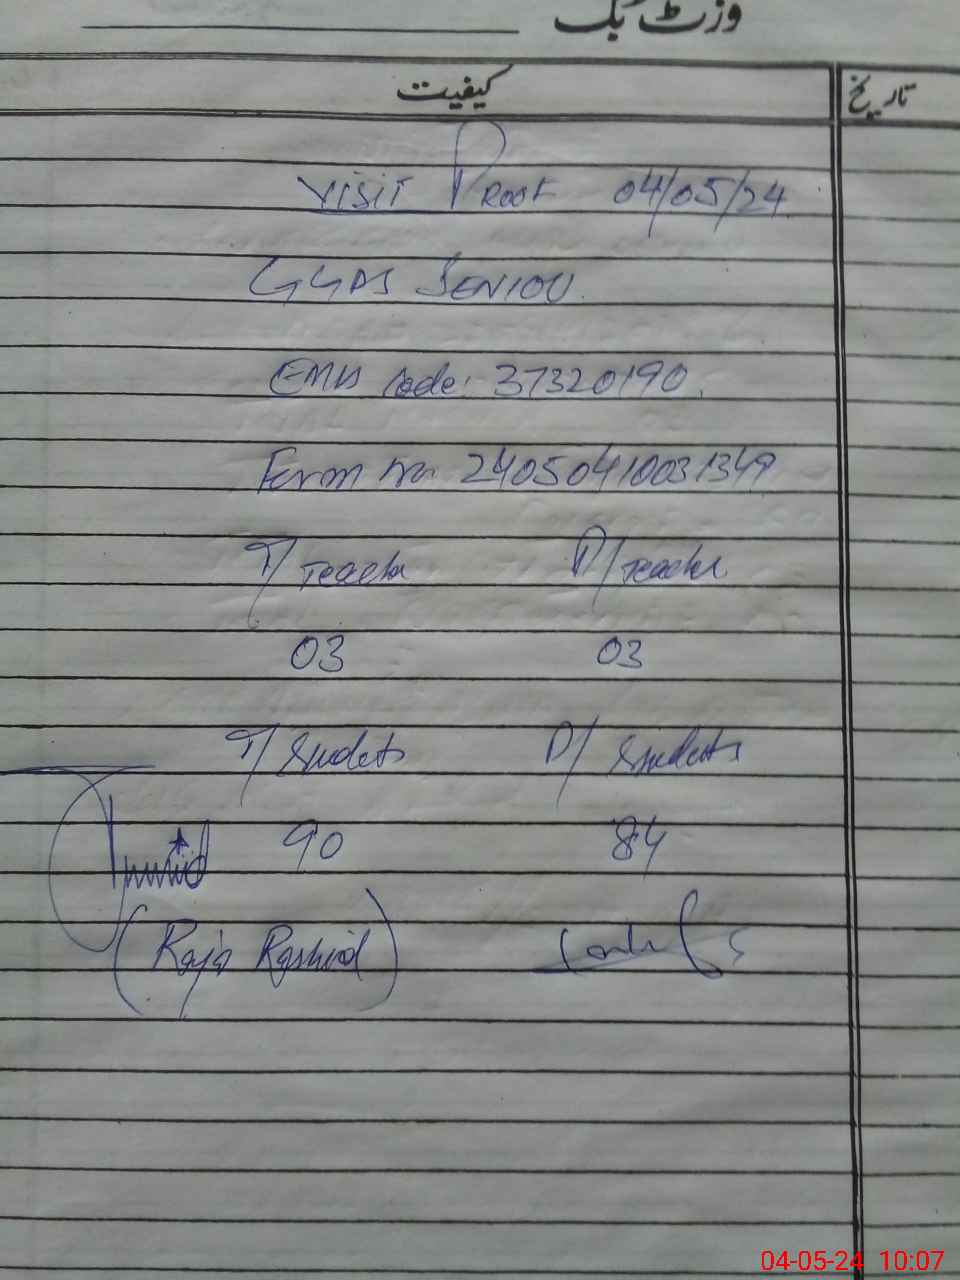 وزٹ بک
کیفیت تاریخ
VISIT PROOF 04/05/24
EMIS Code: 37320190
Form no 24050410031349
T/ Teacher P/ Teacher
03 03
T/ Students P/ Students
90 84
(Raja Rashid)
04-05-24 10:07